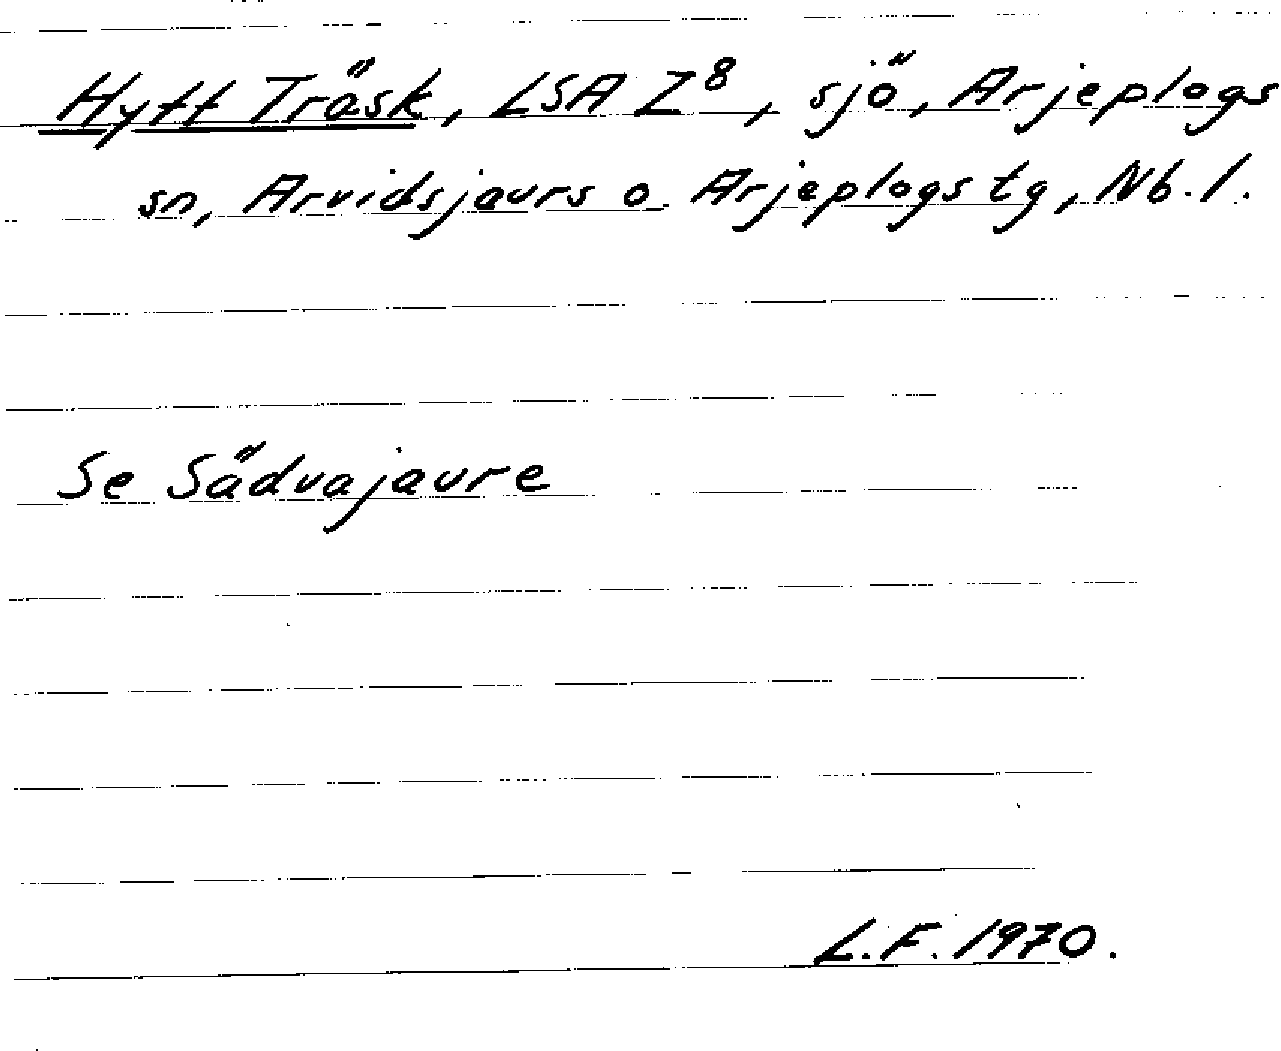 Hytt Träsk, LSA Z8, sjö, Arjeplogs
sn, Arvidsjaurs o. Arjeplogs tg, Nb. l.
Se Sädvajaure
L.F. 1970.